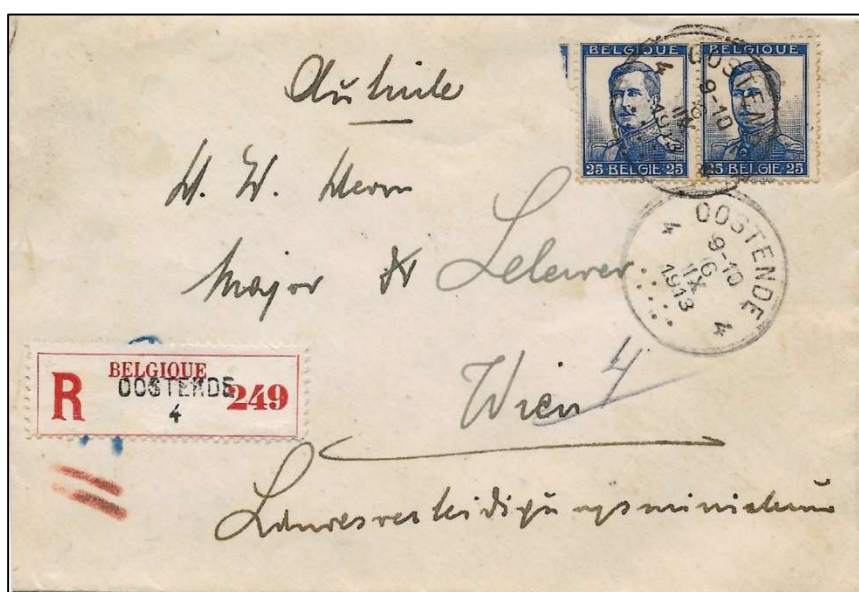 BELGIQUE BELGIQUE
25 BELGIE 25 25 BELGIE 25
OOSTENDE
9-10
IX
1913
4 4
Major Dr Lelewer.
OOSTENDE
9-10
16
IX
1913
4 4
BELGIQUE
R OOSTENDE 249
4
Wien 4
Landesverteidigungsministerium